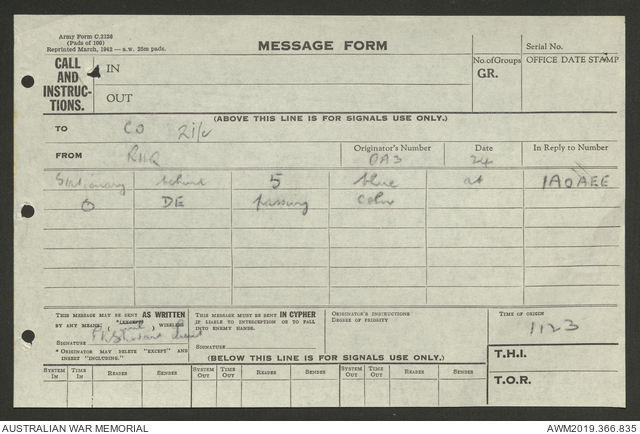 Army Form C.2128
(Pads of 100)
Reprinted March, 1942 — s.w. 25m pads.
MESSAGE FORM
Serial No.
CALL AND INSTRUC-TIONS.
IN
OUT
No. of Groups
GR.
OFFICE DATE STAMP
(ABOVE THIS LINE IS FOR SIGNALS USE ONLY.)
TO CO 2i/c
FROM RHQ
Originator's Number
OA3
Date
24
In Reply to Number
Stationary behind 5 blue at 1A0AEE
O DE passing coln
THIS MESSAGE MAY BE SENT AS WRITTEN
BY ANY MEANS, *(EXCEPT) WIRELESS
SIGNATURE
* ORIGINATOR MAY DELETE "EXCEPT" AND
INSERT "INCLUDING."
THIS MESSAGE MUST BE SENT IN CYPHER
IF LIABLE TO INTERCEPTION OR TO FALL
INTO ENEMY HANDS.
SIGNATURE
ORIGINATOR'S INSTRUCTIONS
DEGREE OF PRIORITY
TIME OF ORIGIN
1123
(BELOW THIS LINE IS FOR SIGNALS USE ONLY.)
T.H.I.
T.O.R.
SYSTEM IN TIME IN READER SENDER SYSTEM OUT TIME OUT READER SENDER SYSTEM OUT TIME OUT READER SENDER
AUSTRALIAN WAR MEMORIAL
AWM2019.366.835